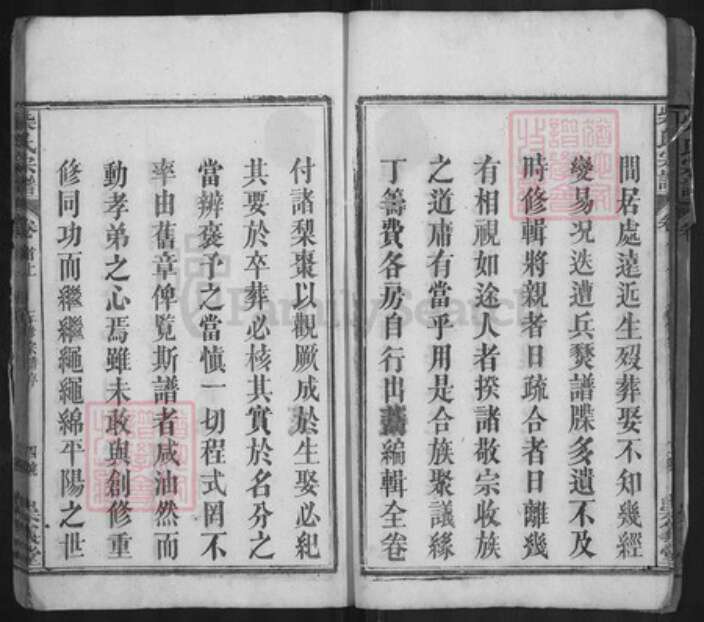 間居處遠近生殁葬娶不知幾經
變易况迭遭兵燹譜牒多遺不及
時修輯將親者日疏合者日離幾
有相視如途人者揆諸敬宗收族
之道庸有當乎用是合族聚議緣
丁籌費各房自行出藁編輯全卷
付諸梨棗以觀厥成於生娶必紀
其要於卒葬必核其實於名分之
當辨褒予之當慎一切程式罔不
率由舊章俾覧斯譜者咸油然而
動孝弟之心焉雖未敢與創修重
修同功而繼繼繩繩綿平陽之世
氏宗譜
卷首上
四號
FamilySearch